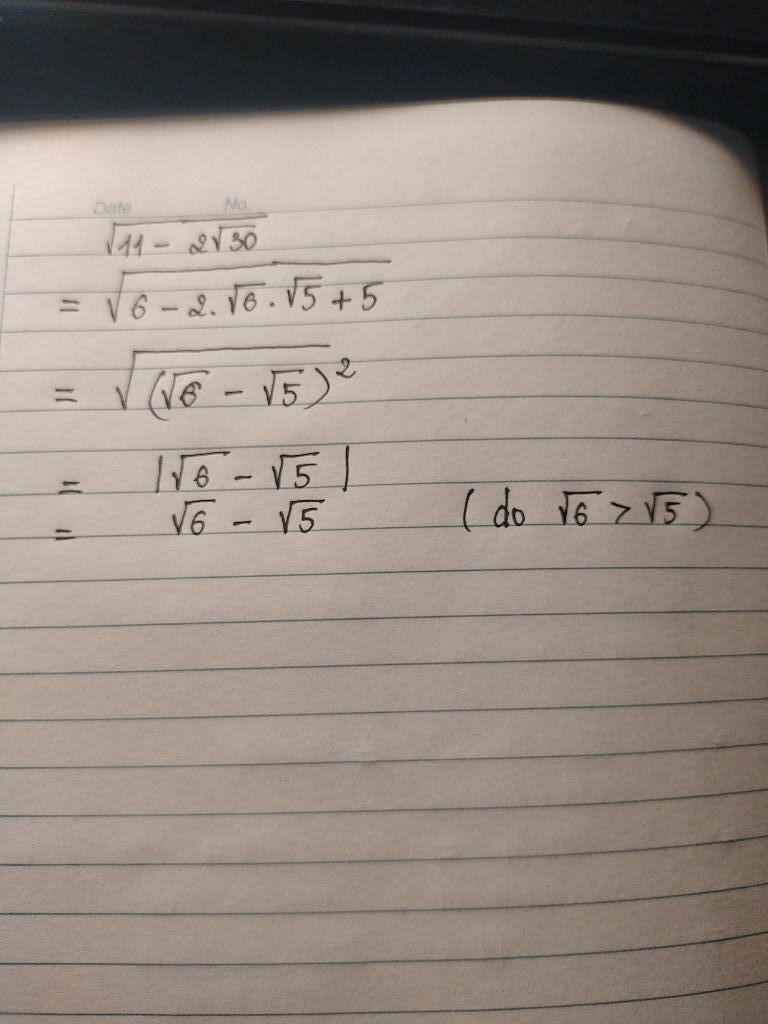 Date No.
√(11 - 2√30)
= √(6 - 2.√6.√5 + 5)
= √(√6 - √5)²
= |√6 - √5|
= √6 - √5 (do √6 > √5)